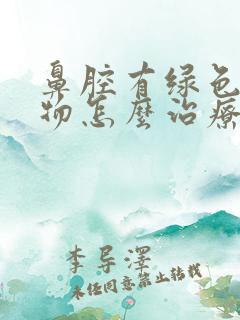 鼻腔有绿色
物怎麼治療
李导泽
未经同意禁止转载